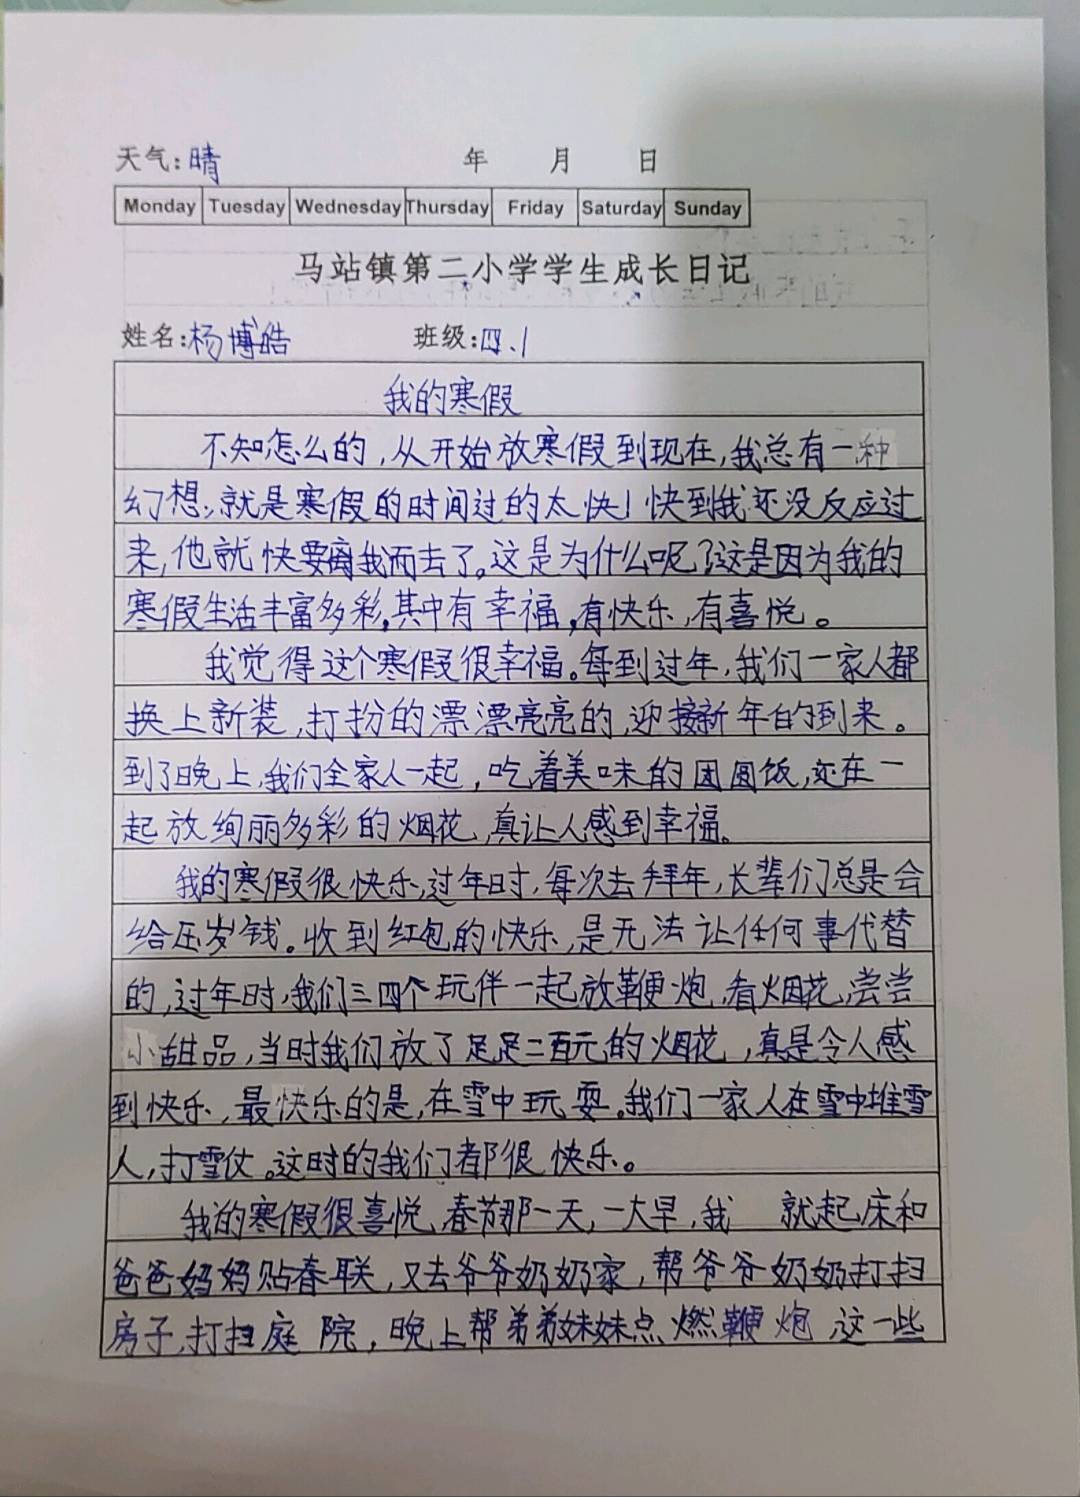 天气:晴 年 月 日
Monday Tuesday Wednesday Thursday Friday Saturday Sunday
马站镇第二小学学生成长日记
姓名:杨博皓 班级:四.1
我的寒假
不知怎么的,从开始放寒假到现在,我总有一种
幻想,就是寒假的时间过的太快!快到我还没反应过
来,他就快要离我而去了。这是为什么呢?这是因为我的
寒假生活丰富多彩,其中有幸福,有快乐,有喜悦。
我觉得这个寒假很幸福。每到过年,我们一家人都
换上新装,打扮的漂漂亮亮的,迎接新年的到来。
到了晚上,我们全家人一起,吃着美味的团圆饭,还在一
起放绚丽多彩的烟花,真让人感到幸福。
我的寒假很快乐,过年时,每次去拜年,长辈们总是会
给压岁钱。收到红包的快乐,是无法让任何事代替
的,过年时,我们三四个玩伴一起放鞭炮,看烟花,尝尝
小甜品,当时我们放了足足二百元的烟花,真是令人感
到快乐,最快乐的是,在雪中玩耍。我们一家人在雪中堆雪
人,打雪仗。这时的我们都很快乐。
我的寒假很喜悦,春节那一天,一大早,我 就起床和
爸爸妈妈贴春联,又去爷爷奶奶家,帮爷爷奶奶打扫
房子,打扫庭院,晚上帮弟弟妹妹点燃鞭炮,这一些